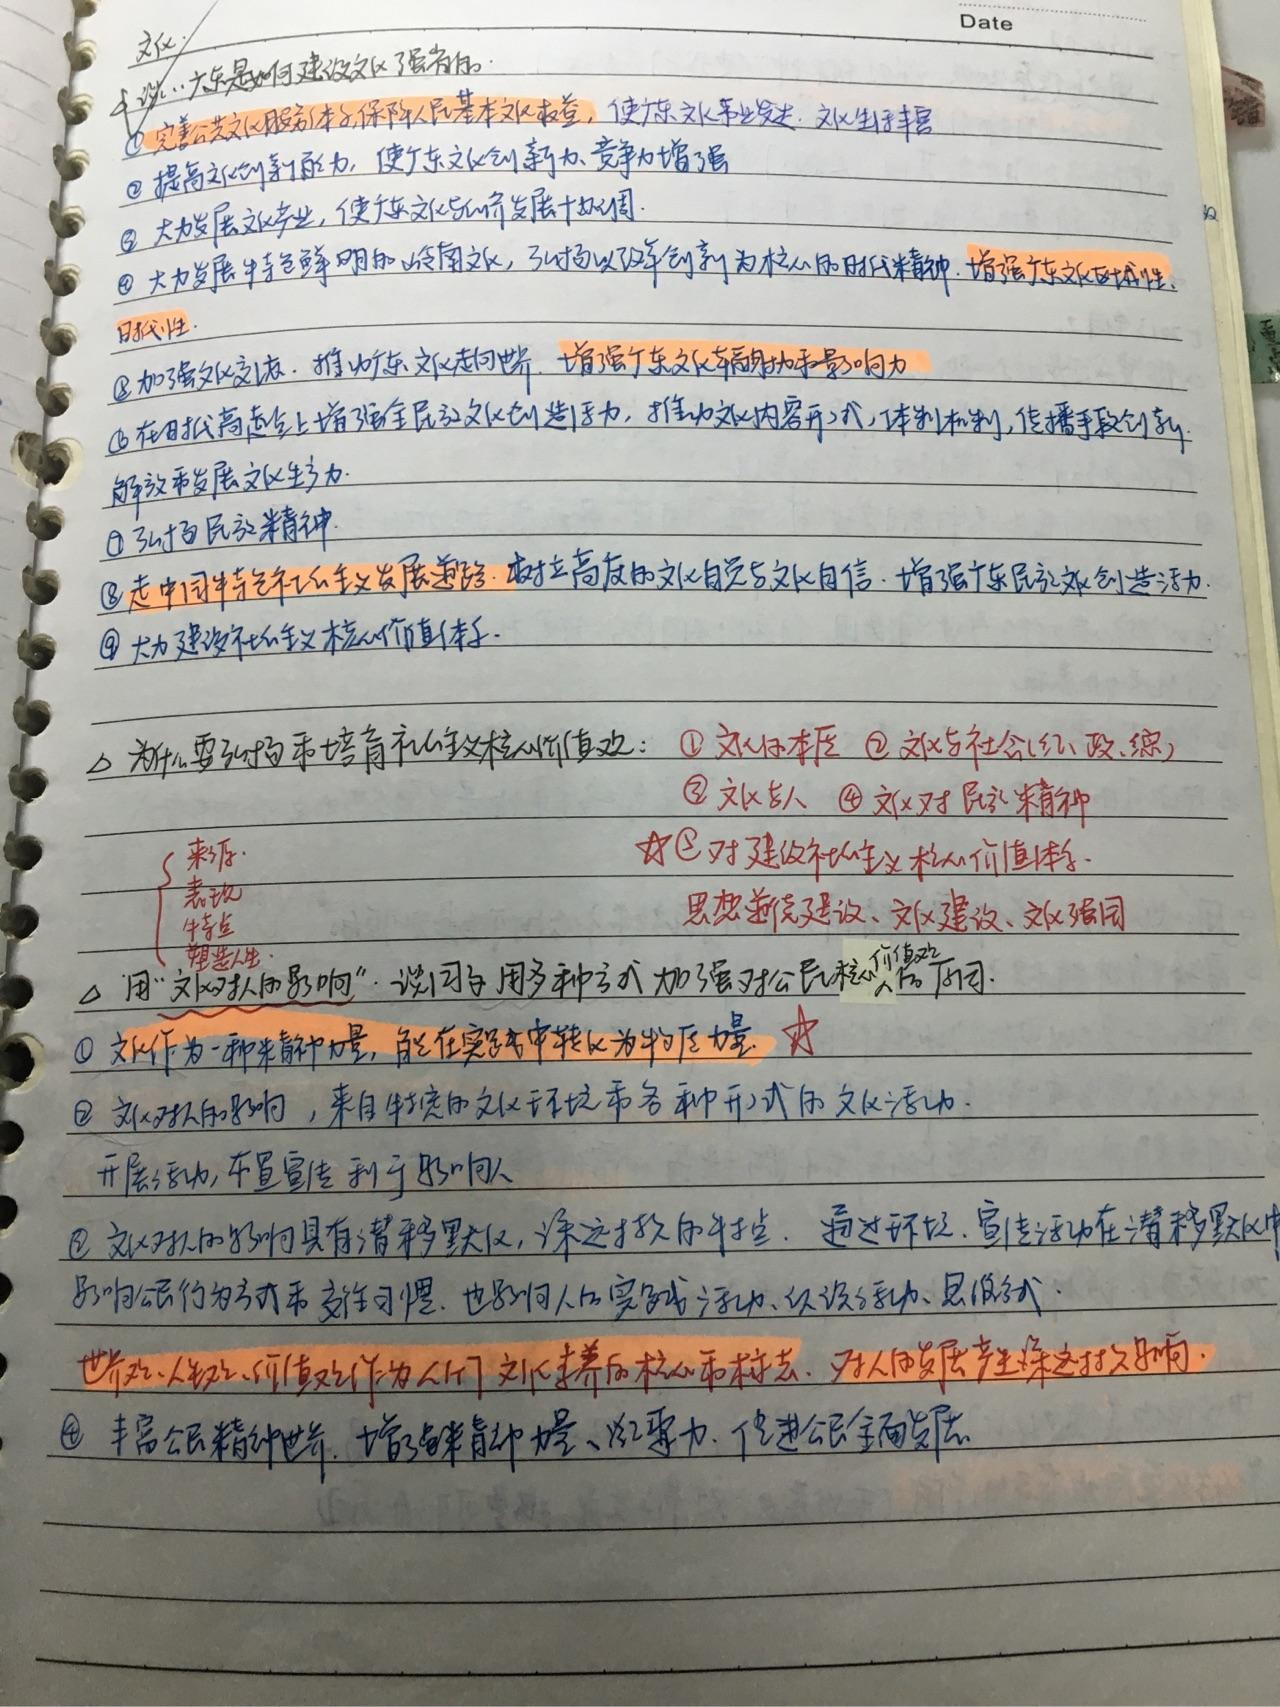 Date
文化.
谈…广东是如何建设文化强省的.
①完善公共文化服务体系保障人民基本文化权益,使广东文化事业发达.文化生活丰富
②提高文化创新能力,使广东文化创新力、竞争力增强
③大力发展文化产业,使广东文化与经济发展十协调.
④大力发展特色鲜明的岭南文化,弘扬以改革创新为核心的时代精神.增强广东文化区域性、
时代性.
⑤加强文化交流.推动广东文化走向世界.增强广东文化辐射力和影响力
⑥在时代高起点上增强全民族文化创造活力,推动文化内容形式,体制机制,传播手段创新.
解放和发展文化生产力.
⑦弘扬民族精神.
⑧走中国特色社会主义发展道路.树立高度的文化自觉与文化自信.增强广东民族文化创造活力.
⑨大力建设社会主义核心价值体系.
△为什么要弘扬和培育社会主义核心价值观: ①文化的本质 ②文化与社会(经、政、综)
③文化与人 ④文化对民族精神
☆⑤对建设社会主义核心价值体系.
来源.
表现
思想道德建设、文化建设、文化强国
特点
塑造人生.
△用“文化对人的影响”.谈河南用多种方式加强对公民核心价值观人的认同.
①文化作为一种精神力量,能在实践中转化为物质力量.☆
②文化对人的影响,来自特定的文化环境和各种形式的文化活动.
开展活动,布置宣传利于影响人
③文化对人的影响具有潜移默化,深远持久的特点.通过环境.宣传活动在潜移默化中
影响公民行为方式和交往习惯.也影响人的实践活动、认识活动、思维方式.
世界观、人生观、价值观作为人们文化素养的核心和标志.对人的发展产生深远持久影响.
④丰富公民精神世界.增强精神力量、凝聚力.促进公民全面发展